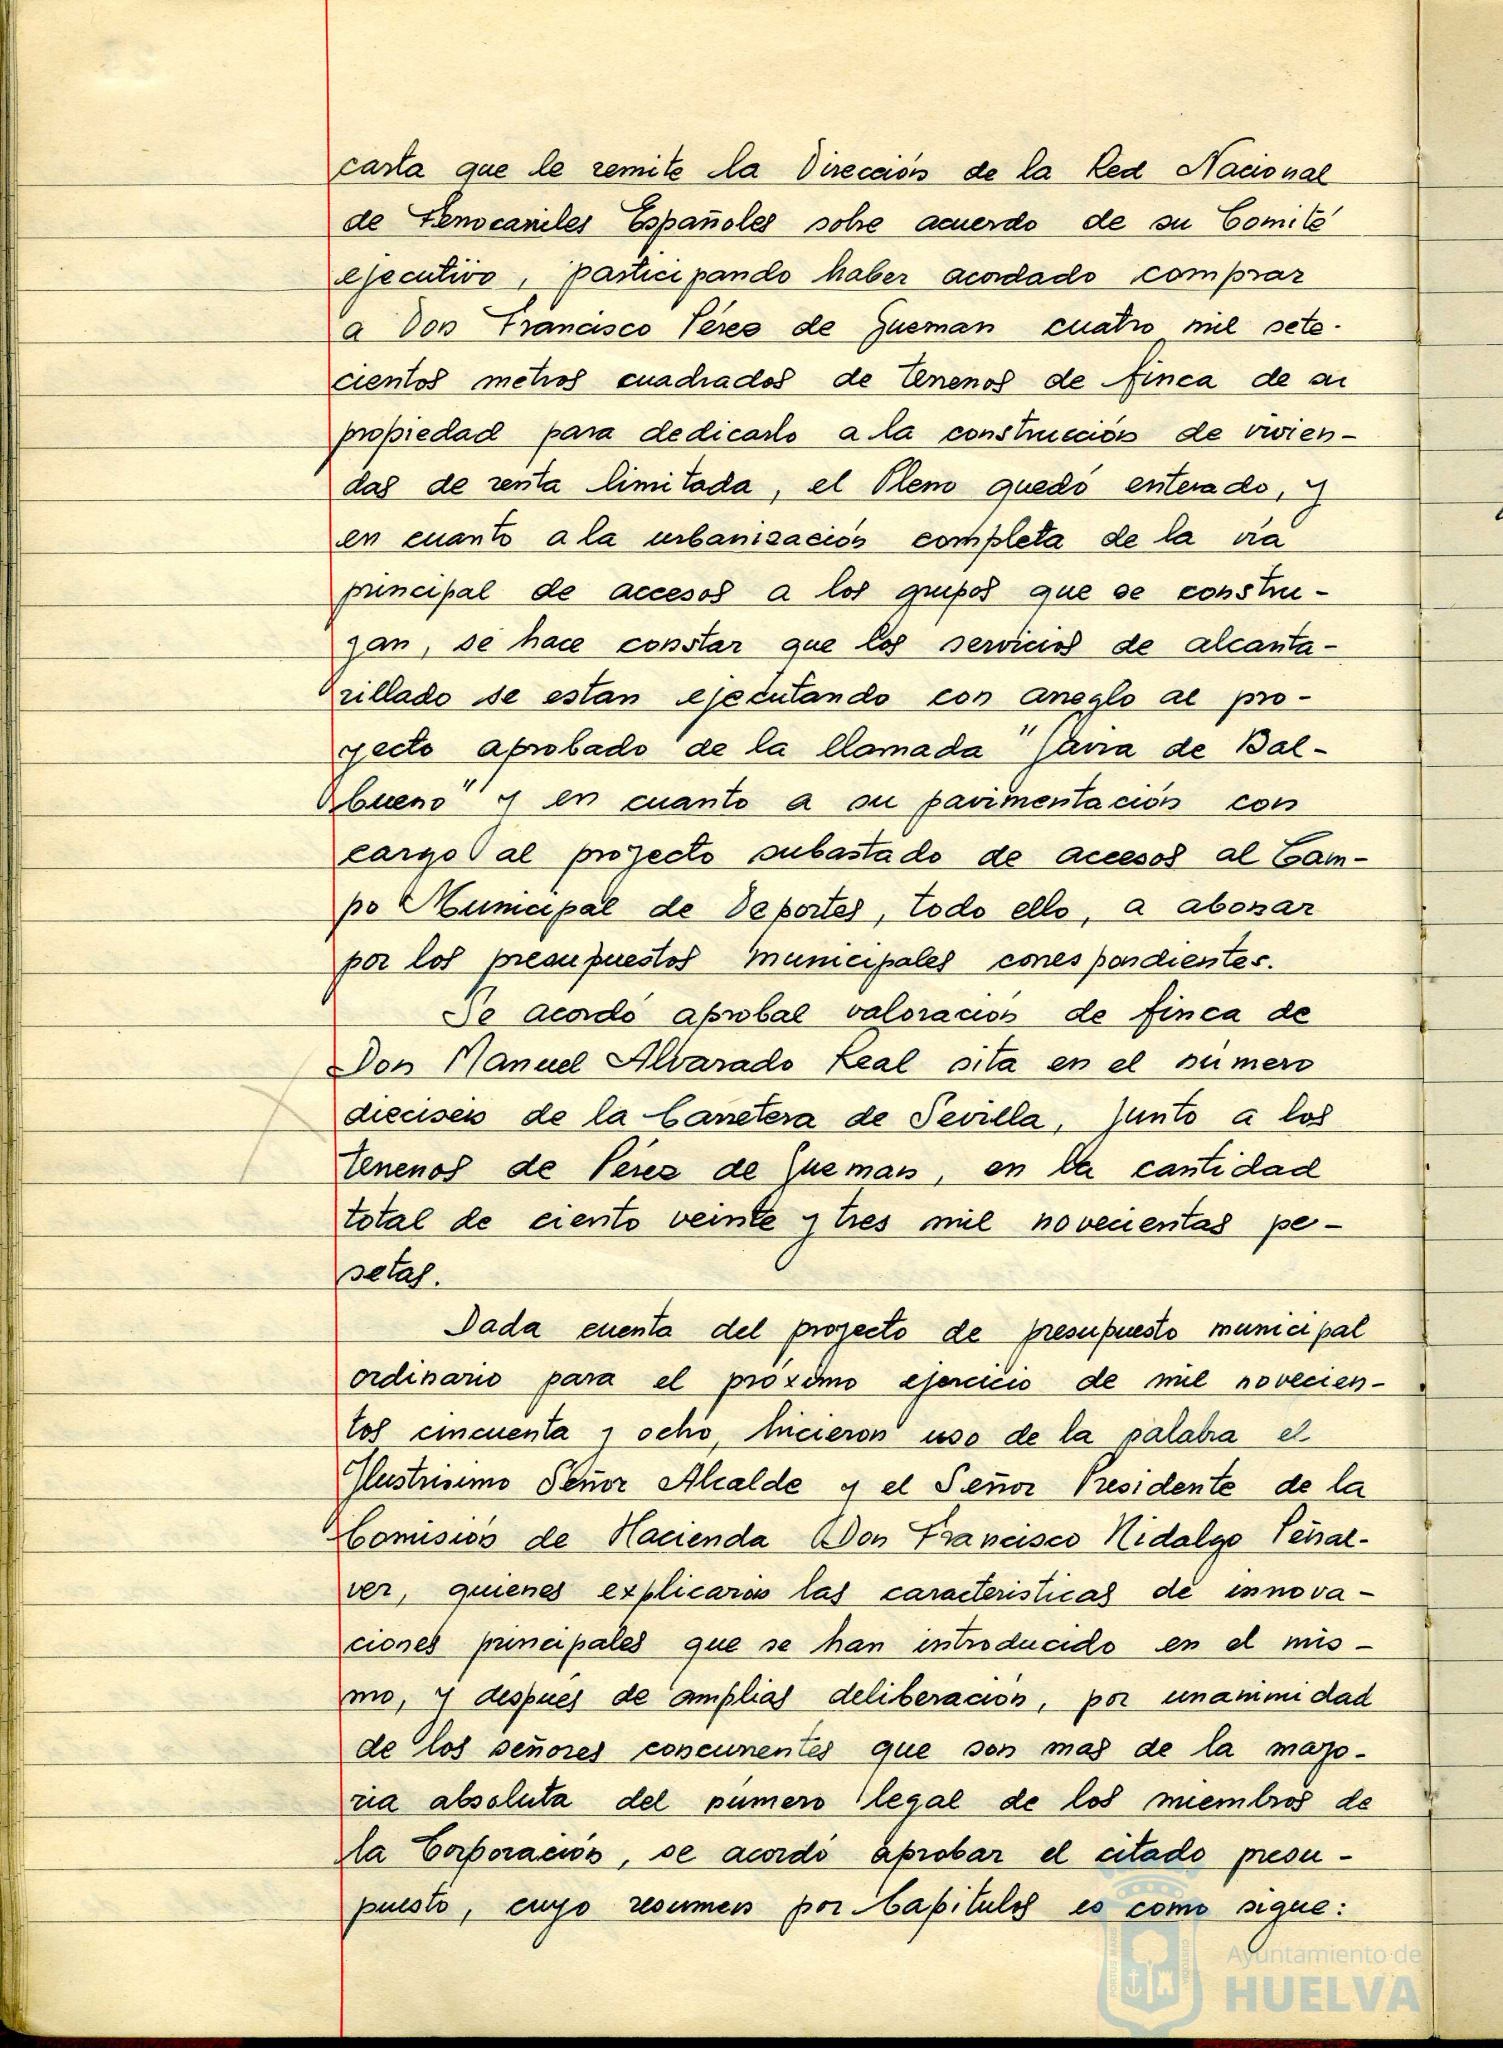 carta que le remite la Dirección de la Red Nacional
de Ferrocarriles Españoles sobre acuerdo de su Comité
ejecutivo, participando haber acordado comprar
a Don Francisco Pérez de Guzman cuatro mil sete-
cientos metros cuadrados de terrenos de finca de su
propiedad para dedicarlo a la construcción de vivien-
das de renta limitada, el Pleno quedó enterado, y
en cuanto a la urbanización completa de la vía
principal de accesos a los grupos que se constru-
yan, se hace constar que los servicios de alcanta-
rillado se estan ejecutando con arreglo al pro-
yecto aprobado de la llamada "Gavia de Bal-
bueno" y en cuanto a su pavimentación con
cargo al proyecto subastado de accesos al Cam-
po Municipal de Deportes, todo ello, a abonar
por los presupuestos municipales correspondientes.
Se acordó aprobal valoración de finca de
Don Manuel Alvarado Real sita en el número
dieciseis de la Carretera de Sevilla, junto a los
terrenos de Pérez de Guzman, en la cantidad
total de ciento veinte y tres mil novecientas pe-
setas.
Dada cuenta del proyecto de presupuesto municipal
ordinario para el próximo ejercicio de mil novecien-
tos cincuenta y ocho, hicieron uso de la palabra el
Ilustrisimo Señor Alcalde y el Señor Presidente de la
Comisión de Hacienda Don Francisco Hidalgo Peñal-
ver, quienes explicaron las caracteristicas de innova-
ciones principales que se han introducido en el mis-
mo, y después de amplias deliberación, por unanimidad
de los señores concurrentes que son mas de la mayo-
ria absoluta del número legal de los miembros de
la Corporación, se acordó aprobar el citado presu-
puesto, cuyo resumen por Capitulos es como sigue:
Ayuntamiento de
HUELVA